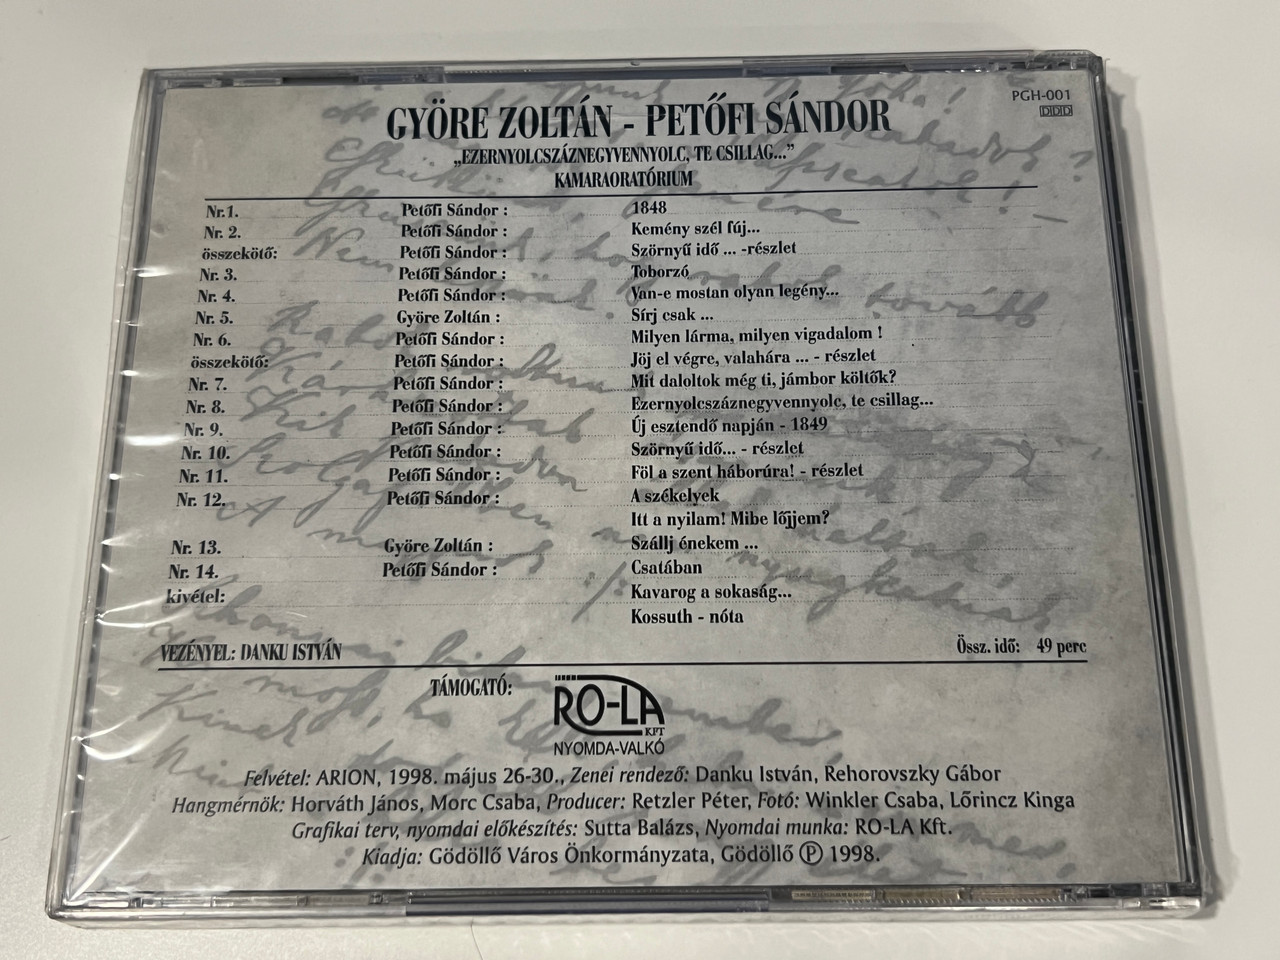 PGH-001
DDD
GYÖRE ZOLTÁN - PETŐFI SÁNDOR
„EZERNYOLCSZÁZNEGYVENNYOLC, TE CSILLAG..."
KAMARAORATÓRIUM
Nr.1. Petőfi Sándor : 1848
Nr. 2. Petőfi Sándor : Kemény szél fúj...
összekötő: Petőfi Sándor : Szörnyű idő ... -részlet
Nr. 3. Petőfi Sándor : Toborzó
Nr. 4. Petőfi Sándor : Van-e mostan olyan legény...
Nr. 5. Györe Zoltán : Sírj csak ...
Nr. 6. Petőfi Sándor : Milyen lárma, milyen vigadalom !
összekötő: Petőfi Sándor : Jöj el végre, valahára ... - részlet
Nr. 7. Petőfi Sándor : Mit daloltok még ti, jámbor költők?
Nr. 8. Petőfi Sándor : Ezernyolcszáznegyvennyolc, te csillag...
Nr. 9. Petőfi Sándor : Új esztendő napján - 1849
Nr. 10. Petőfi Sándor : Szörnyű idő... - részlet
Nr. 11. Petőfi Sándor : Föl a szent háborúra! - részlet
Nr. 12. Petőfi Sándor : A székelyek
Itt a nyilam! Mibe lőjjem?
Nr. 13. Györe Zoltán : Szállj énekem ...
Nr. 14. Petőfi Sándor : Csatában
kivétel: Kavarog a sokaság...
Kossuth - nóta
VEZÉNYEL: DANKU ISTVÁN Össz. idő: 49 perc
TÁMOGATÓ: RO-LA
KFT
NYOMDA-VALKÓ
Felvétel: ARION, 1998. május 26-30., Zenei rendező: Danku István, Rehorovszky Gábor
Hangmérnök: Horváth János, Morc Csaba, Producer: Retzler Péter, Fotó: Winkler Csaba, Lőrincz Kinga
Grafikai terv, nyomdai előkészítés: Sutta Balázs, Nyomdai munka: RO-LA Kft.
Kiadja: Gödöllő Város Önkormányzata, Gödöllő Ⓟ 1998.